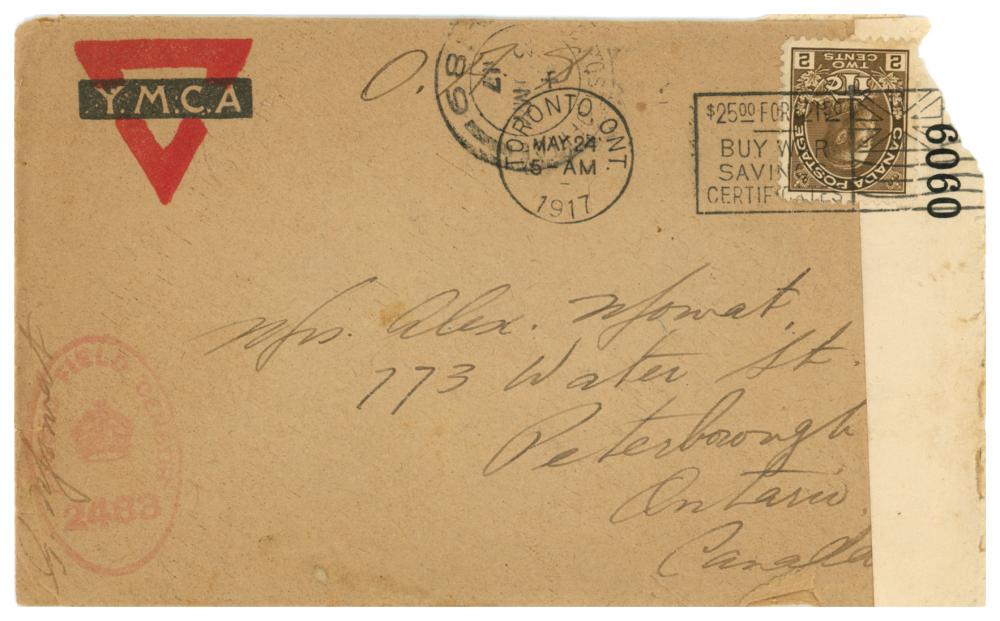 Y.M.C.A
O.A.S.
68
17
TORONTO, ONT.
MAY 24
5- AM
1917
$25.00 FOR $21.50
BUY WAR
SAVINGS
CERTIFICATES
CANADA POSTAGE
2 TWO CENTS 2
6060
Mrs. Alex. Mowat,
773 Water St.
Peterborough
Ontario
Canada
FIELD CENSOR
2483
Mowat